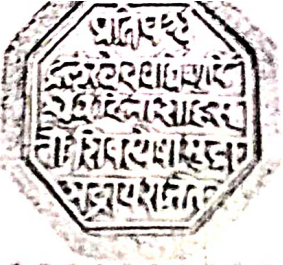 प्रतिपच्चं
द्रलेखेव वर्धिष्णुर्वि
श्ववंदिता शाहसू
नोः शिवस्यैषा मुद्रा
भद्राय राजते